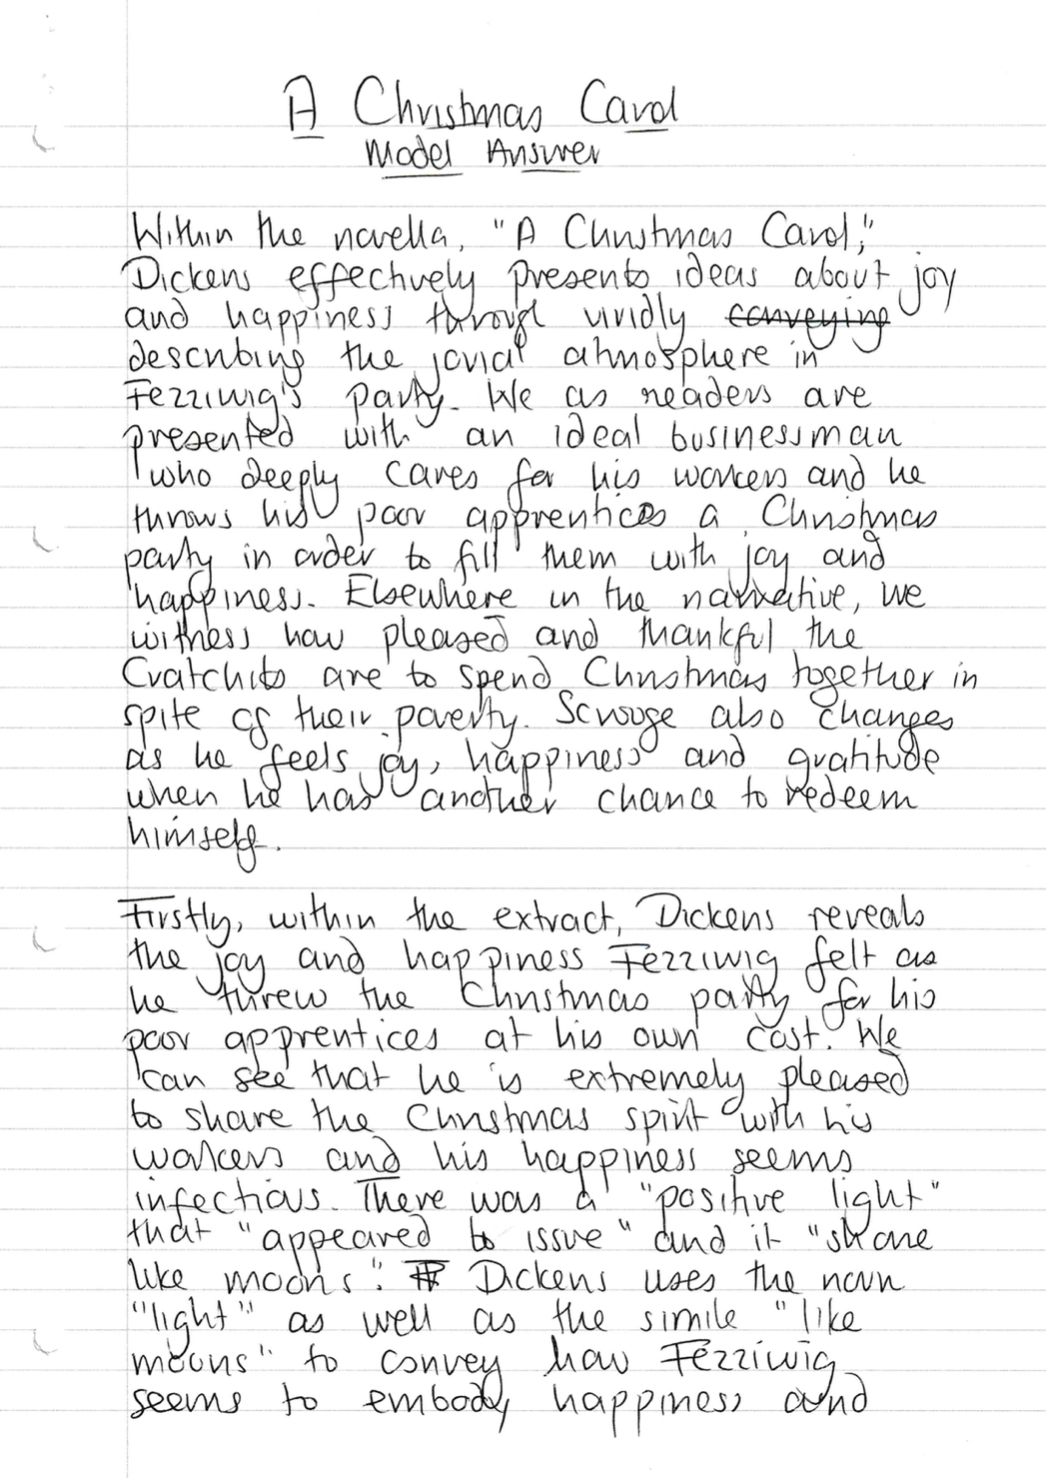 A Christmas Carol
Model Answer
Within the novella, "A Christmas Carol,"
Dickens effectively presents ideas about joy
and happiness through vividly conveying
describing the jovial atmosphere in
Fezziwig's party. We as readers are
presented with an ideal businessman
who deeply cares for his workers and he
throws his poor apprentices a Christmas
party in order to fill them with joy and
happiness. Elsewhere in the narrative, we
witness how pleased and thankful the
Cratchits are to spend Christmas together in
spite of their poverty. Scrooge also changes
as he feels joy, happiness and gratitude
when he has another chance to redeem
himself.
Firstly, within the extract, Dickens reveals
the joy and happiness Fezziwig felt as
he threw the Christmas party for his
poor apprentices at his own cost. We
can see that he is extremely pleased
to share the Christmas spirit with his
workers and his happiness seems
infectious. There was a "positive light"
that "appeared to issue" and it "shone
like moons". Dickens uses the noun
"light" as well as the simile "like
moons" to convey how Fezziwig
seems to embody happiness and